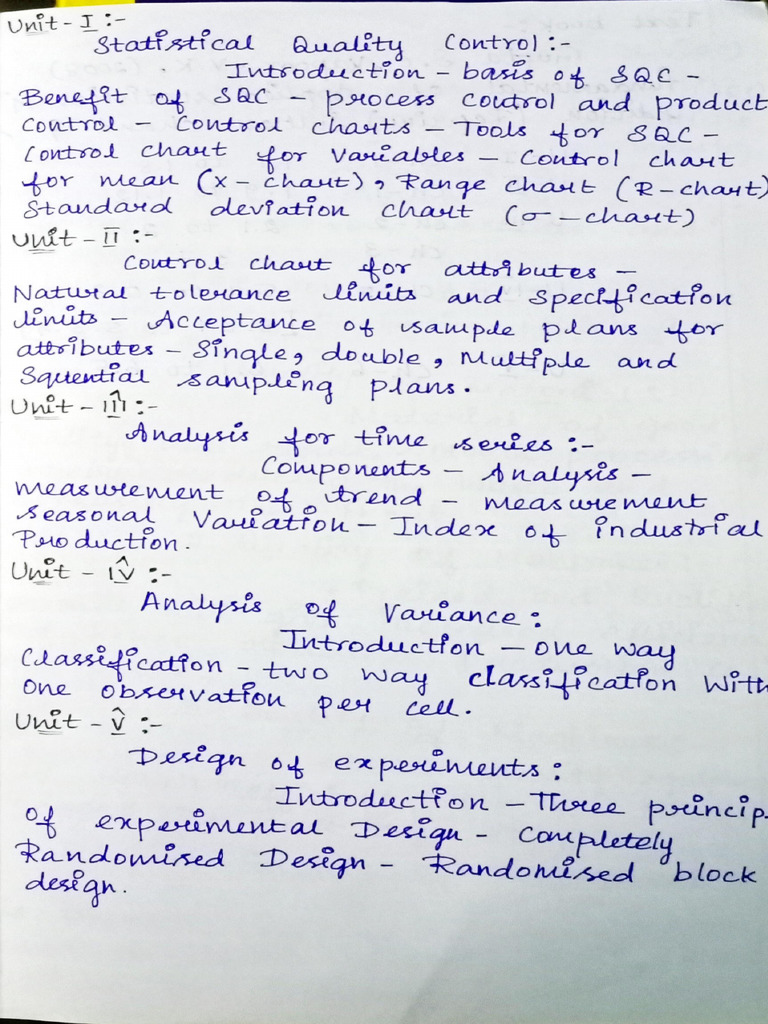 Unit - I :-
Statistical Quality Control :-
Introduction - basis of SQC -
Benefit of SQC - process control and product
Control - Control charts - Tools for SQC -
Control chart for Variables - Control chart
for mean (x - chart), Range chart (R - chart)
Standard deviation chart (σ - chart)
Unit - II :-
Control chart for attributes -
Natural tolerance limits and specification
limits - Acceptance of sample plans for
attributes - Single, double, Multiple and
Sqtential sampling plans.
Unit - III :-
Analysis for time series :-
Components - Analysis -
measurement of trend - measurement
seasonal Variation - Index of industrial
Production.
Unit - IV :-
Analysis of Variance :
Introduction - one way
Classification - two way classification With
one observation per cell.
Unit - V :-
Design of experiments :
Introduction - Three princip
of experimental Design - Completely
Randomised Design - Randomised block
design.